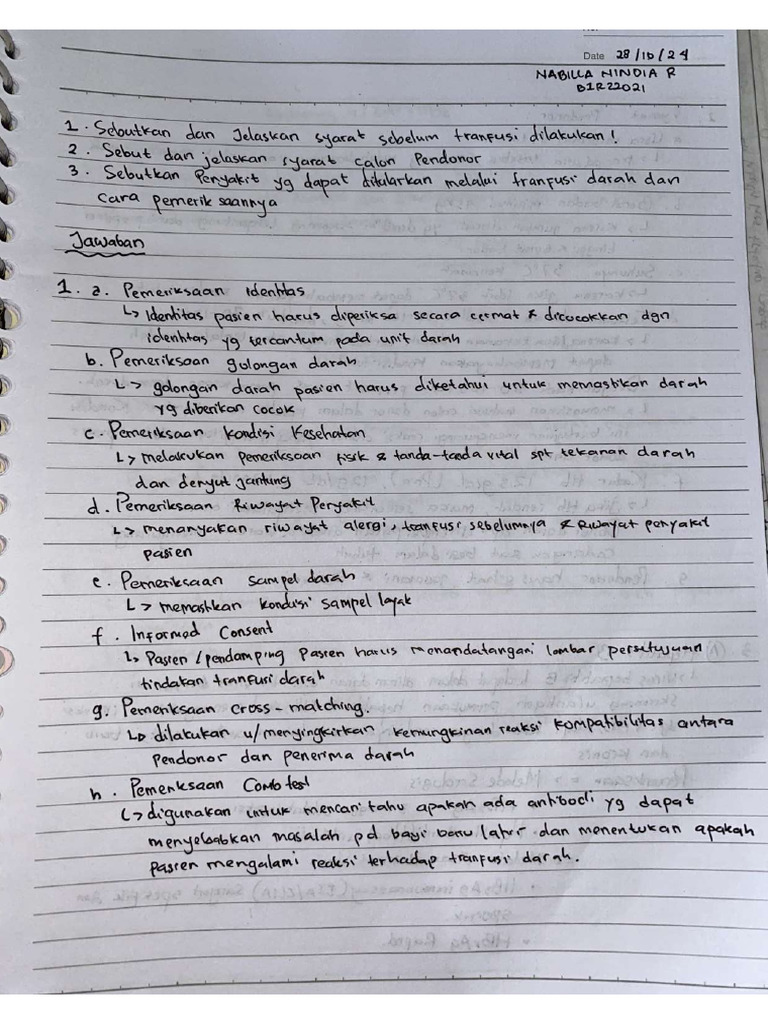 Date 28/10/24
NABILLA NINDIA R
D1R22021
1. Sebutkan dan Jelaskan syarat sebelum tranfusi dilakukan!
2. Sebut dan jelaskan syarat calon Pendonor
3. Sebutkan Penyakit yg dapat ditularkan melalui tranfusi darah dan
cara pemeriksaannya
Jawaban
1. a. Pemeriksaan Identitas
↳ Identitas pasien harus diperiksa secara cermat & dicocokkan dgn
identitas yg tercantum pada unit darah
b. Pemeriksaan golongan darah
↳ golongan darah pasien harus diketahui untuk memastikan darah
yg diberikan cocok
c. Pemeriksaan Kondisi Kesehatan
↳ melakukan pemeriksaan fisik & tanda-tanda vital spt tekanan darah
dan denyut jantung
d. Pemeriksaan Riwayat Penyakit
↳ menanyakan riwayat alergi, tranfusi sebelumnya & Riwayat penyakit
pasien
e. Pemeriksaan sampel darah
↳ memastikan kondisi sampel layak
f. Informed Consent
↳ Pasien/pendamping Pasien harus menandatangani lembar persetujuan
tindakan tranfusi darah
g. Pemeriksaan cross-matching.
↳ dilakukan u/menyingkirkan kemungkinan reaksi kompatibilitas antara
Pendonor dan penerima darah
h. Pemeriksaan Comb test
↳ digunakan untuk mencari tahu apakah ada antibodi yg dapat
menyebabkan masalah pd bayi baru lahir dan menentukan apakah
pasien mengalami reaksi terhadap tranfusi darah.